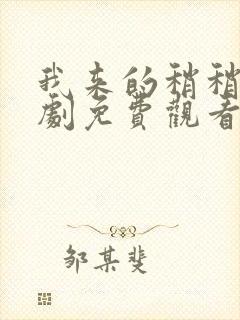 我来的稍稍
劇免費觀看
邹某斐